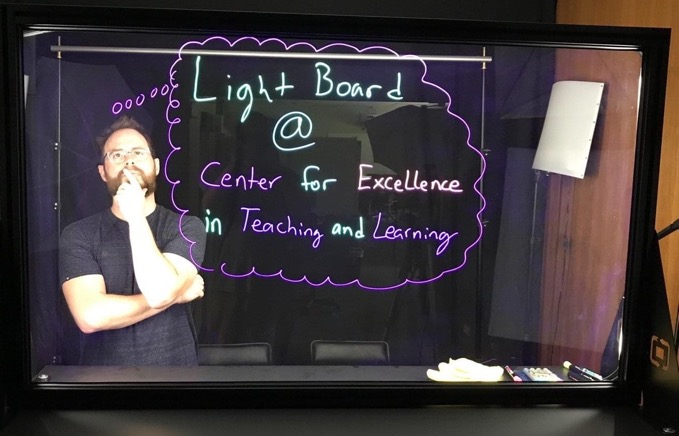 Light Board
@
Center for Excellence
in Teaching and Learning